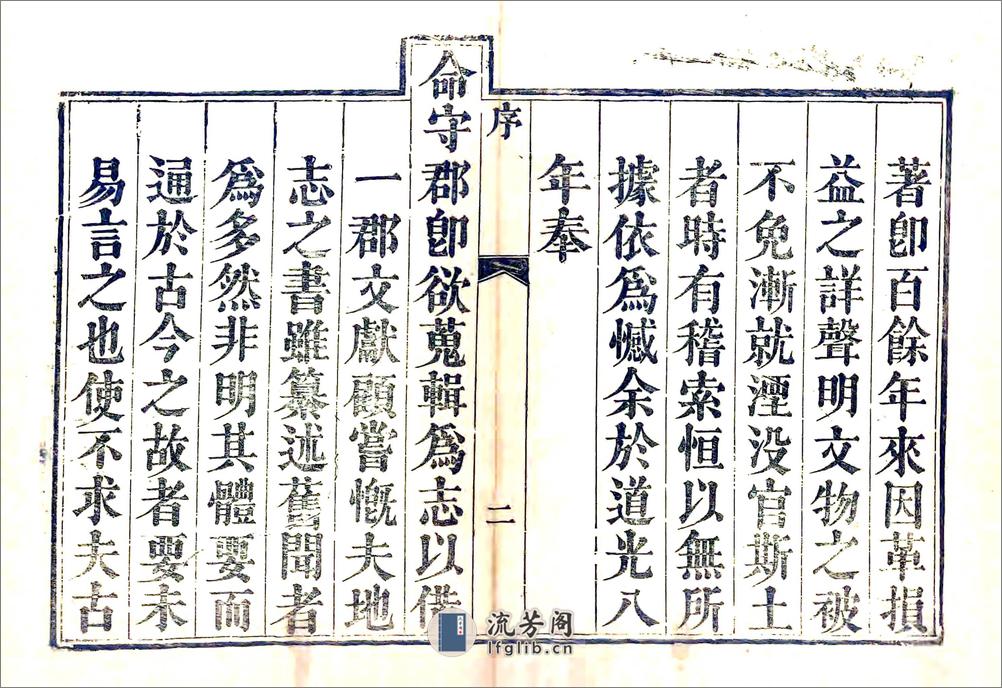 著卽百餘年來因革損
益之詳聲明文物之被
不免漸就湮没官斯土
者時有稽索恒以無所
據依爲憾余於道光八
年奉
序
二
命守郡卽欲蒐輯爲志以備
一郡文獻顧嘗慨夫地
志之書雖纂述舊聞者
爲多然非明其體要而
通於古今之故者要未
易言之也使不求夫古
流芳阁
lfglib.cn